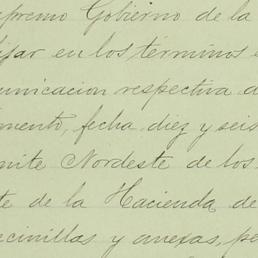 upremo Gobierno de la
ijar en los términos
unicacion respectiva d
mento, fecha diez y seis
mite Nordeste de los
te de la Hacienda de
ecinillas y anexas, pe